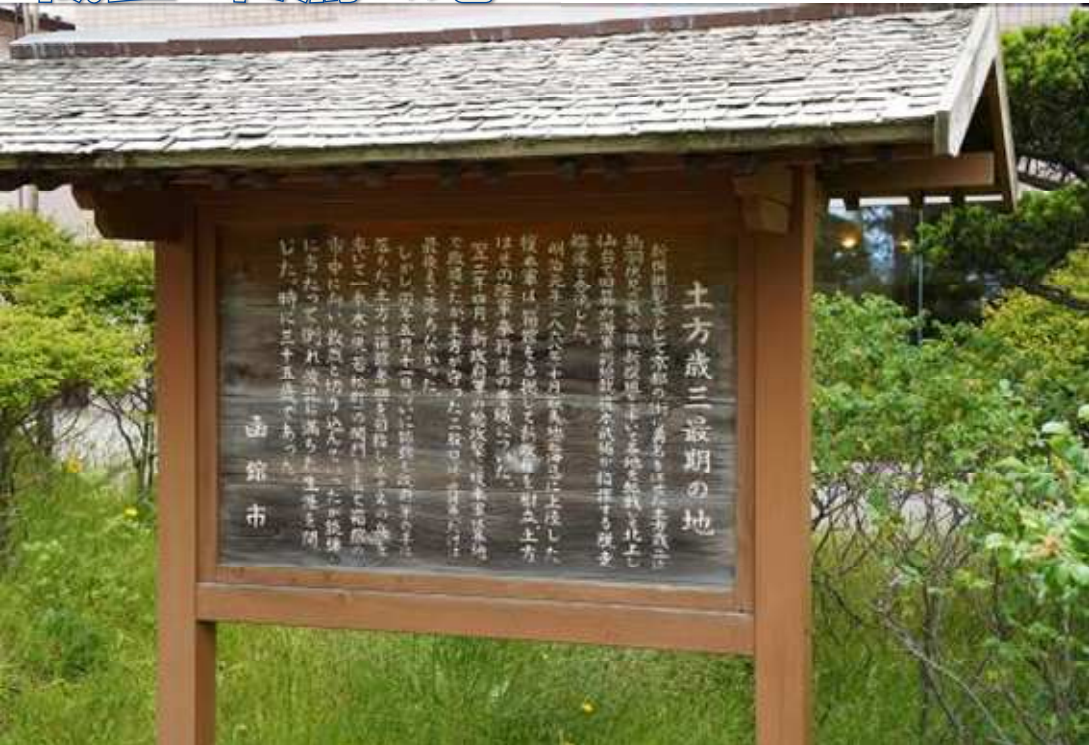 土方歳三最期の地
新撰組副長として京都の街に勇名をはせた土方歳三は
鳥羽伏見の戦の後新撰組を率いて各地を転戦して北上し
仙台で旧幕府海軍副総裁榎本武揚が指揮する脱走
艦隊と合流した。
明治元年(一八六八年)十月蝦夷地鷲ノ木に上陸した
榎本軍は箱館を占拠して新政権を樹立、土方
はその陸軍奉行並の要職についた。
翌二年四月、新政府軍の総攻撃に榎本軍は各地
で敗退したが土方が守った二股口は一貫軍だけは
最後まで落ちなかった。
しかし同年五月十一日、ついに箱館も政府軍の手に
落ちた。土方は箱館奪回を目指し
率いて一本木(現若松町)の関門を出て箱館の
市中に向い、敵陣に切り込んでいったが銃弾
にあたって倒れ、波乱に満ちた生涯を閉
じた。時に三十五歳であった。
函館市